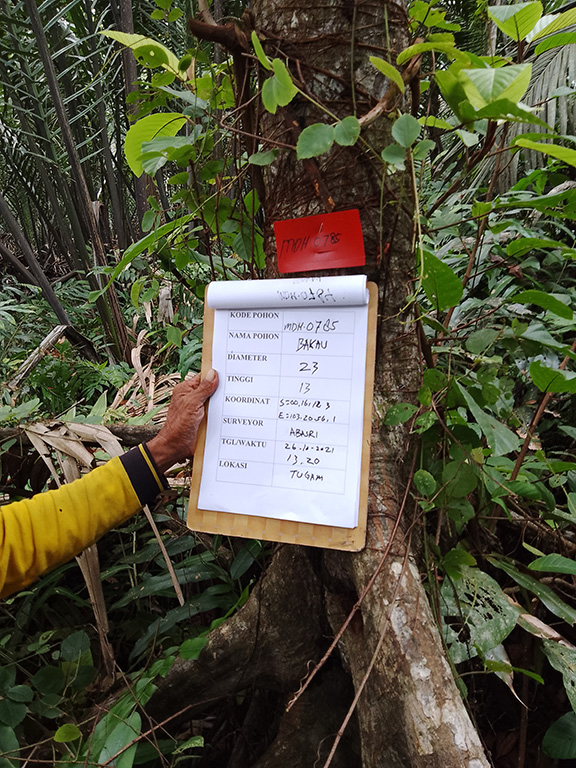 MDH-0785
KODE POHON MDH-0785
NAMA POHON BAKAU
DIAMETER 23
TINGGI 13
KOORDINAT S=00,16:12 3
E=103.20.56,1
SURVEYOR
TGL/WAKTU 26.10-2021
13,20
LOKASI TUGAM